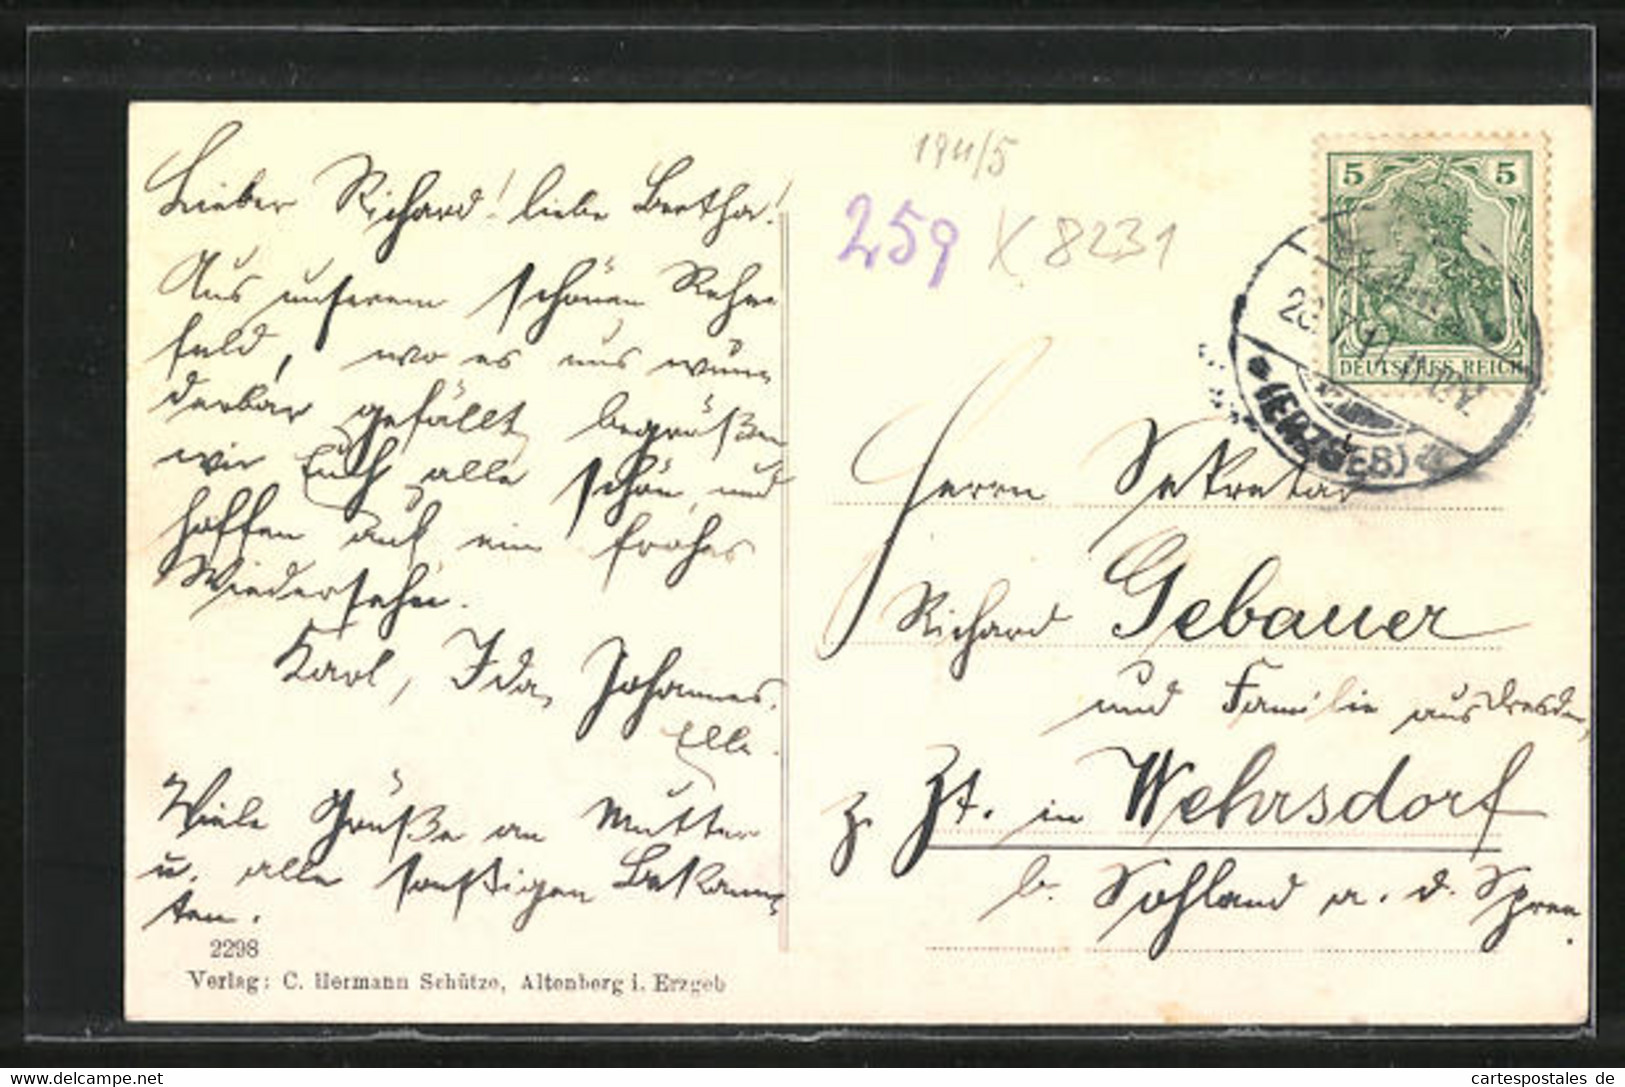 Lieber Richard! liebe Bertha!
Aus unserem schönen Rehe-
feld, wo es uns wun-
derbar gefällt, begrüßen
wir Euch alle schön, und
hoffen auf ein frohes
Wiedersehn.
Karl, Ida, Johannes,
Elle.
Viele Grüße an Mutter
u. alle sonstigen Bekann-
ten.
2298
Verlag: C. Hermann Schütze, Altenberg i. Erzgeb
1911/5
259 X 8231
5 5
DEUTSCHES REICH
(ERZGEB)
Herrn Sekretär
Richard Gebauer
und Familie aus Dresden,
z. Zt. in Wehrsdorf
b. Sohland a. d. Spree.
cartespostales de
www.delcampe.net